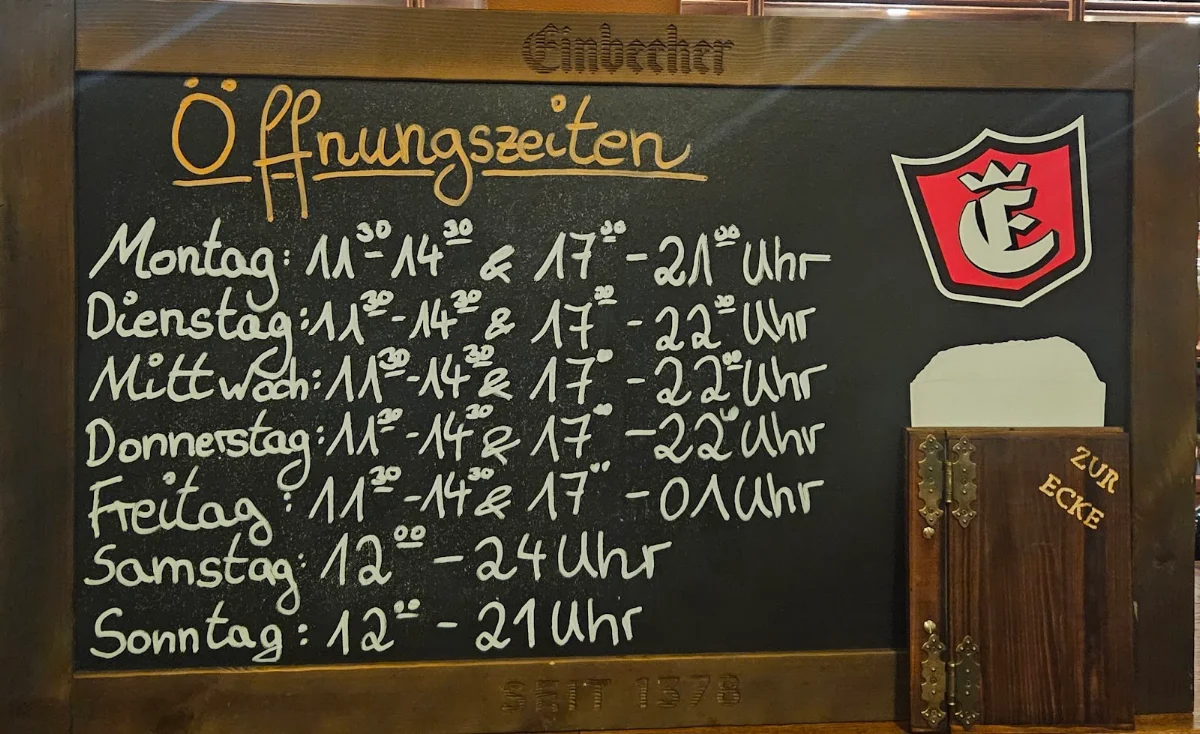 Einbecker
Öffnungszeiten
Montag: 11³⁰-14³⁰ & 17⁰⁰-21⁰⁰ Uhr
Dienstag: 11³⁰-14³⁰ & 17³⁰-22³⁰ Uhr
Mittwoch: 11³⁰-14³⁰ & 17⁰⁰-22⁰⁰ Uhr
Donnerstag: 11³⁰-14³⁰ & 17⁰⁰-22⁰⁰ Uhr
Freitag: 11³⁰-14³⁰ & 17⁰⁰-01 Uhr
Samstag: 12⁰⁰-24 Uhr
Sonntag: 12⁰⁰-21 Uhr
SEIT 1378
E
ZUR
ECKE